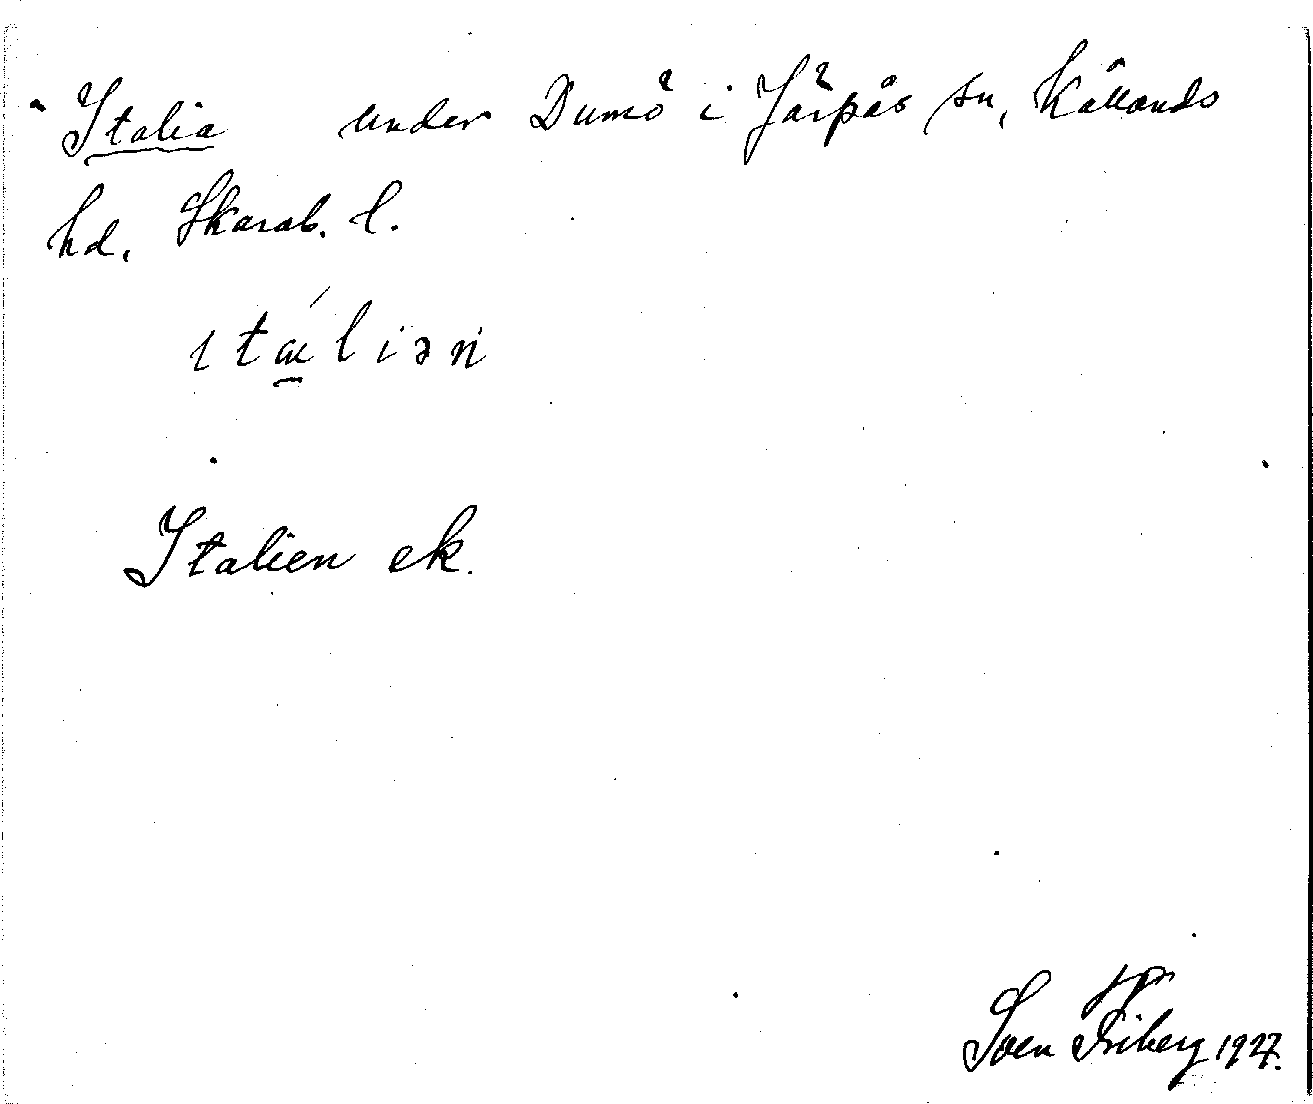 Italia under Dumö i Järpås sn, Kållands
hd, Skarab. l.
ıtálıəṅ
Italien ek.
Sven Friberg 1927.